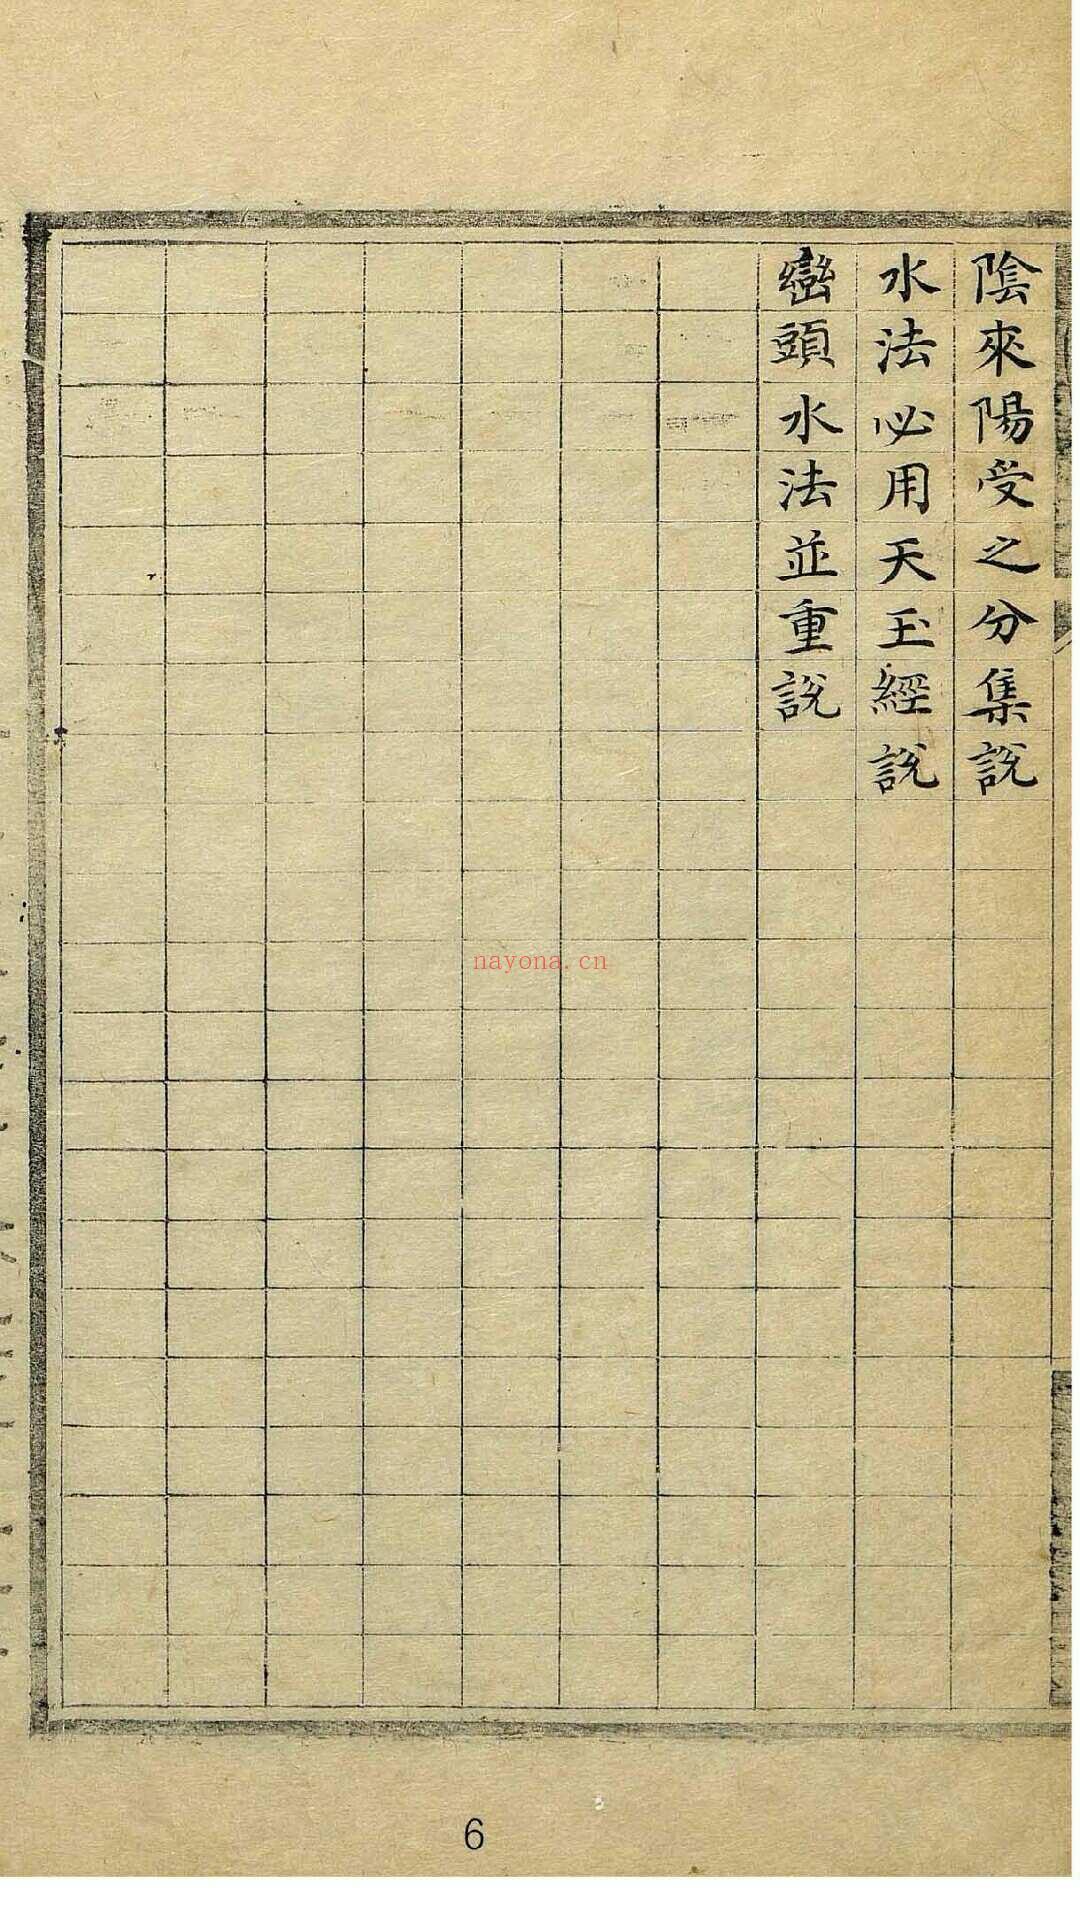 陰來陽受之分集說
水法必用天玉經說
巒頭水法並重說
nayona.cn
6